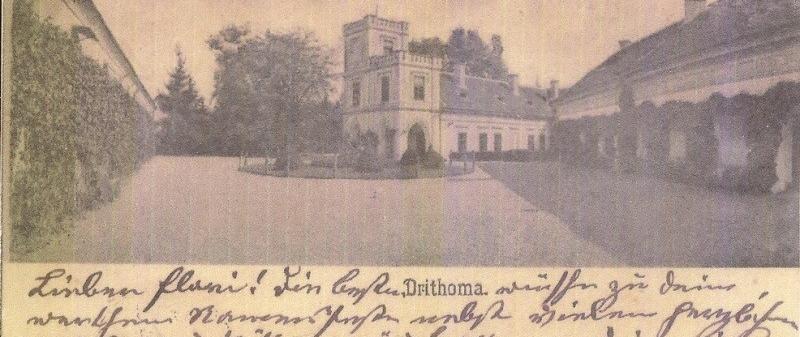 Lieber Flori! Die besten Drithoma. Wünsche zu Deinem
werthen Namensfeste nebst vielen herzlichen